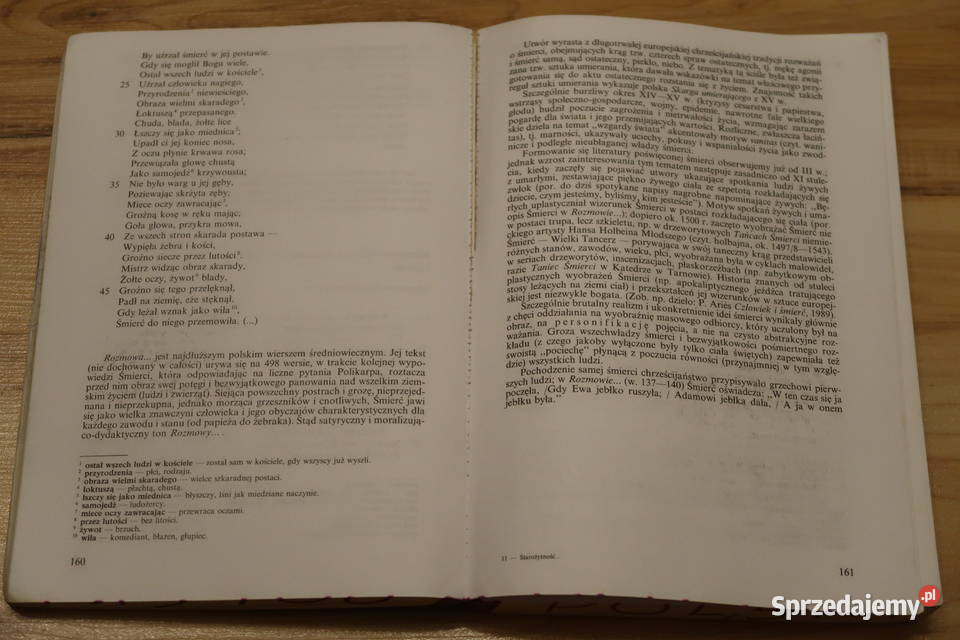 By uźrzał śmierć w jej postawie.
Gdy się moglił Bogu wiele,
Ostał wszech ludzi w kościele¹,
25 Uźrzał człowieka nagiego,
Przyrodzenia² niewieściego,
Obraza wielmi skaradego³,
Łoktuszą⁴ przepasanego.
Chuda, blada, żółte lice
30 Łszczy się jako miednica⁵;
Upadł ci jej koniec nosa,
Z oczu płynie krwawa rosa;
Przewiązała głowę chustą
Jako samojedź⁶ krzywousta;
35 Nie było warg u jej gęby,
Poziewając skrżyta zęby;
Miece oczy zawracając⁷,
Groźną kosę w ręku mając;
Goła głowa, przykra mowa,
40 Ze wszech stron skarada postawa —
Wypięła żebra i kości,
Groźno siecze przez lutości⁸.
Mistrz widząc obraz skarady,
Żółte oczy, żywot⁹ blady,
45 Groźno się tego przelęknął,
Padł na ziemię, eże stęknął.
Gdy leżał wznak jako wiła¹⁰,
Śmierć do niego przemowiła. (...)
Rozmowa... jest najdłuższym polskim wierszem średniowiecznym. Jej tekst
(nie dochowany w całości) urywa się na 498 wersie, w trakcie kolejnej wypo-
wiedzi Śmierci, która odpowiadając na liczne pytania Polikarpa, roztacza
przed nim obraz swej potęgi i bezwyjątkowego panowania nad wszelkim ziem-
skim życiem (ludzi i zwierząt). Siejąca powszechny postrach i grozę, nieprzejed-
nana i nieprzekupna, jednako morząca grzeszników i cnotliwych, Śmierć jawi
się jako wielka znawczyni człowieka i jego obyczajów charakterystycznych dla
każdego zawodu i stanu (od papieża do żebraka). Stąd satyryczny i moralizują-
co-dydaktyczny ton Rozmowy... .
¹ ostał wszech ludzi w kościele — został sam w kościele, gdy wszyscy już wyszli.
² przyrodzenia — płci, rodzaju.
³ obraza wielmi skaradego — wielce szkaradnej postaci.
⁴ łoktuszą — płachtą, chustą.
⁵ łszczy się jako miednica — błyszczy, lśni jak miedziane naczynie.
⁶ samojedź — ludożercy.
⁷ miece oczy zawracając — przewraca oczami.
⁸ przez lutości — bez litości.
⁹ żywot — brzuch.
¹⁰ wiła — komediant, błazen, głupiec.
160
Utwór wyrasta z długotrwałej europejskiej chrześcijańskiej tradycji rozważań
o śmierci, obejmujących krąg tzw. czterech spraw ostatecznych, tj. mękę agonii
i śmierć samą, sąd ostateczny, piekło, niebo. Z tematyką tą ściśle była też zwią-
zana tzw. sztuka umierania, która dawała wskazówki na temat właściwego przy-
gotowania się do aktu ostatecznego rozstania się z życiem. Znajomość takich
reguł sztuki umierania wykazuje polska Skarga umierającego z XV w.
Szczególnie burzliwy okres XIV—XV w. (kryzysy cesarstwa i papiestwa,
wstrząsy społeczno-gospodarcze, wojny, epidemie, nawrotne fale wielkiego
głodu) budził poczucie zagrożenia i nietrwałości życia, wzmagając zarazem
pogardę dla świata i jego przemijających wartości. Rozliczne, zwłaszcza łaciń-
skie dzieła na temat „wzgardy świata” akcentowały motyw vanitas (czyt. wani-
tas), tj. marności, ukazywały uciechy, pokusy i wspaniałości życia jako zwod-
nicze i podległe nieubłaganej władzy śmierci.
Formowanie się literatury poświęconej śmierci obserwujemy już od III w.,
jednak wzrost zainteresowania tym tematem następuje zasadniczo od XI stule-
cia, kiedy zaczęły się pojawiać utwory ukazujące spotkania ludzi żywych
z umarłymi, zestawiające piękno żywego ciała ze szpetotą rozkładających się
zwłok (por. do dziś spotykane napisy nagrobne napominające żywych: „Bę-
dziecie, czym jesteśmy, byliśmy, kim jesteście”). Motyw spotkań żywych i uma-
rłych uplastyczniał wizerunek Śmierci w postaci rozkładającego się ciała (por.
opis Śmierci w Rozmowie...); dopiero ok. 1500 r. zaczęto wyobrażać Śmierć nie
w postaci trupa, lecz szkieletu, np. w drzeworytowych Tańcach Śmierci niemie-
ckiego artysty Hansa Holbeina Młodszego (czyt. holbajna, ok. 1497/8—1543).
Śmierć — Wielki Tancerz — porywająca w swój taneczny krąg przedstawicieli
różnych stanów, zawodów, wieku, płci, wyobrażana była w cyklach malowideł,
w seriach drzeworytów, inscenizacjach, płaskorzeźbach (np. zabytkowym ob-
razie Taniec Śmierci w Katedrze w Tarnowie). Historia znanych od stuleci
plastycznych wyobrażeń Śmierci (np. apokaliptycznego jeźdźca tratującego
stosy leżących na ziemi ciał) i przekształceń jej wizerunków w sztuce europej-
skiej jest niezwykle bogata. (Zob. np. dzieło: P. Ariès Człowiek i śmierć, 1989).
Szczególnie brutalny realizm i ukonkretnienie idei śmierci wynikały głównie
z chęci oddziałania na wyobraźnię masowego odbiorcy, który uczulony był na
obraz, na personifikację pojęcia, a nie na czysto abstrakcyjne roz-
ważania. Groza wszechwładzy śmierci i bezwyjątkowości pośmiertnego roz-
kładu (z czego jakoby wyłączone były tylko ciała świętych) zapewniała też
swoistą „pociechę” płynącą z poczucia równości (przynajmniej w tym wzglę-
dzie) wszystkich ludzi.
Pochodzenie samej śmierci chrześcijaństwo przypisywało grzechowi pierw-
szych ludzi; w Rozmowie... (w. 137—140) Śmierć oświadcza: „W ten czas się ja
poczęła, /Gdy Ewa jebłko ruszyła; / Adamowi jebłka dała, / A ja w onem
jebłku była.”
11 — Starożytność...
161
Sprzedajemy.pl